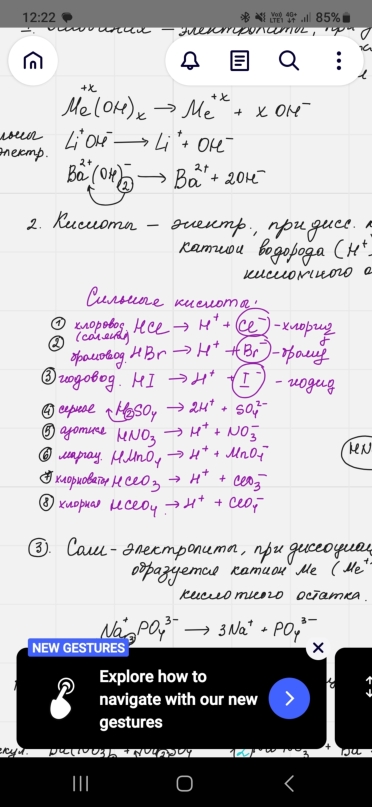 12:22
Vo) 4G+ LTE1 85%
Me(OH)ₓ → Me⁺ˣ + x OH⁻
электр.
Li⁺OH⁻ → Li⁺ + OH⁻
Ba²⁺(OH)₂⁻ → Ba²⁺ + 2OH⁻
2. Кислоты – электр., при дисс.
катион водорода (H⁺
кислотного
Сильные кислоты:
① хлоровод. HCl → H⁺ + Cl⁻ - хлорид
(соляная)
② бромовод. HBr → H⁺ + Br⁻ - бромид
③ иодовод. HI → H⁺ + I⁻ - иодид
④ серная H₂SO₄ → 2H⁺ + SO₄²⁻
⑤ азотная HNO₃ → H⁺ + NO₃⁻
⑥ марган. HMnO₄ → H⁺ + MnO₄⁻
⑦ хлорноватая HClO₃ → H⁺ + ClO₃⁻
⑧ хлорная HClO₄ → H⁺ + ClO₄⁻
HN
③. Соли - электролиты, при диссоциац
образуется катион Me (Me⁺
кислотного остатка.
Na₃⁺PO₄³⁻ → 3Na⁺ + PO₄³⁻
NEW GESTURES
Explore how to
navigate with our new
gestures